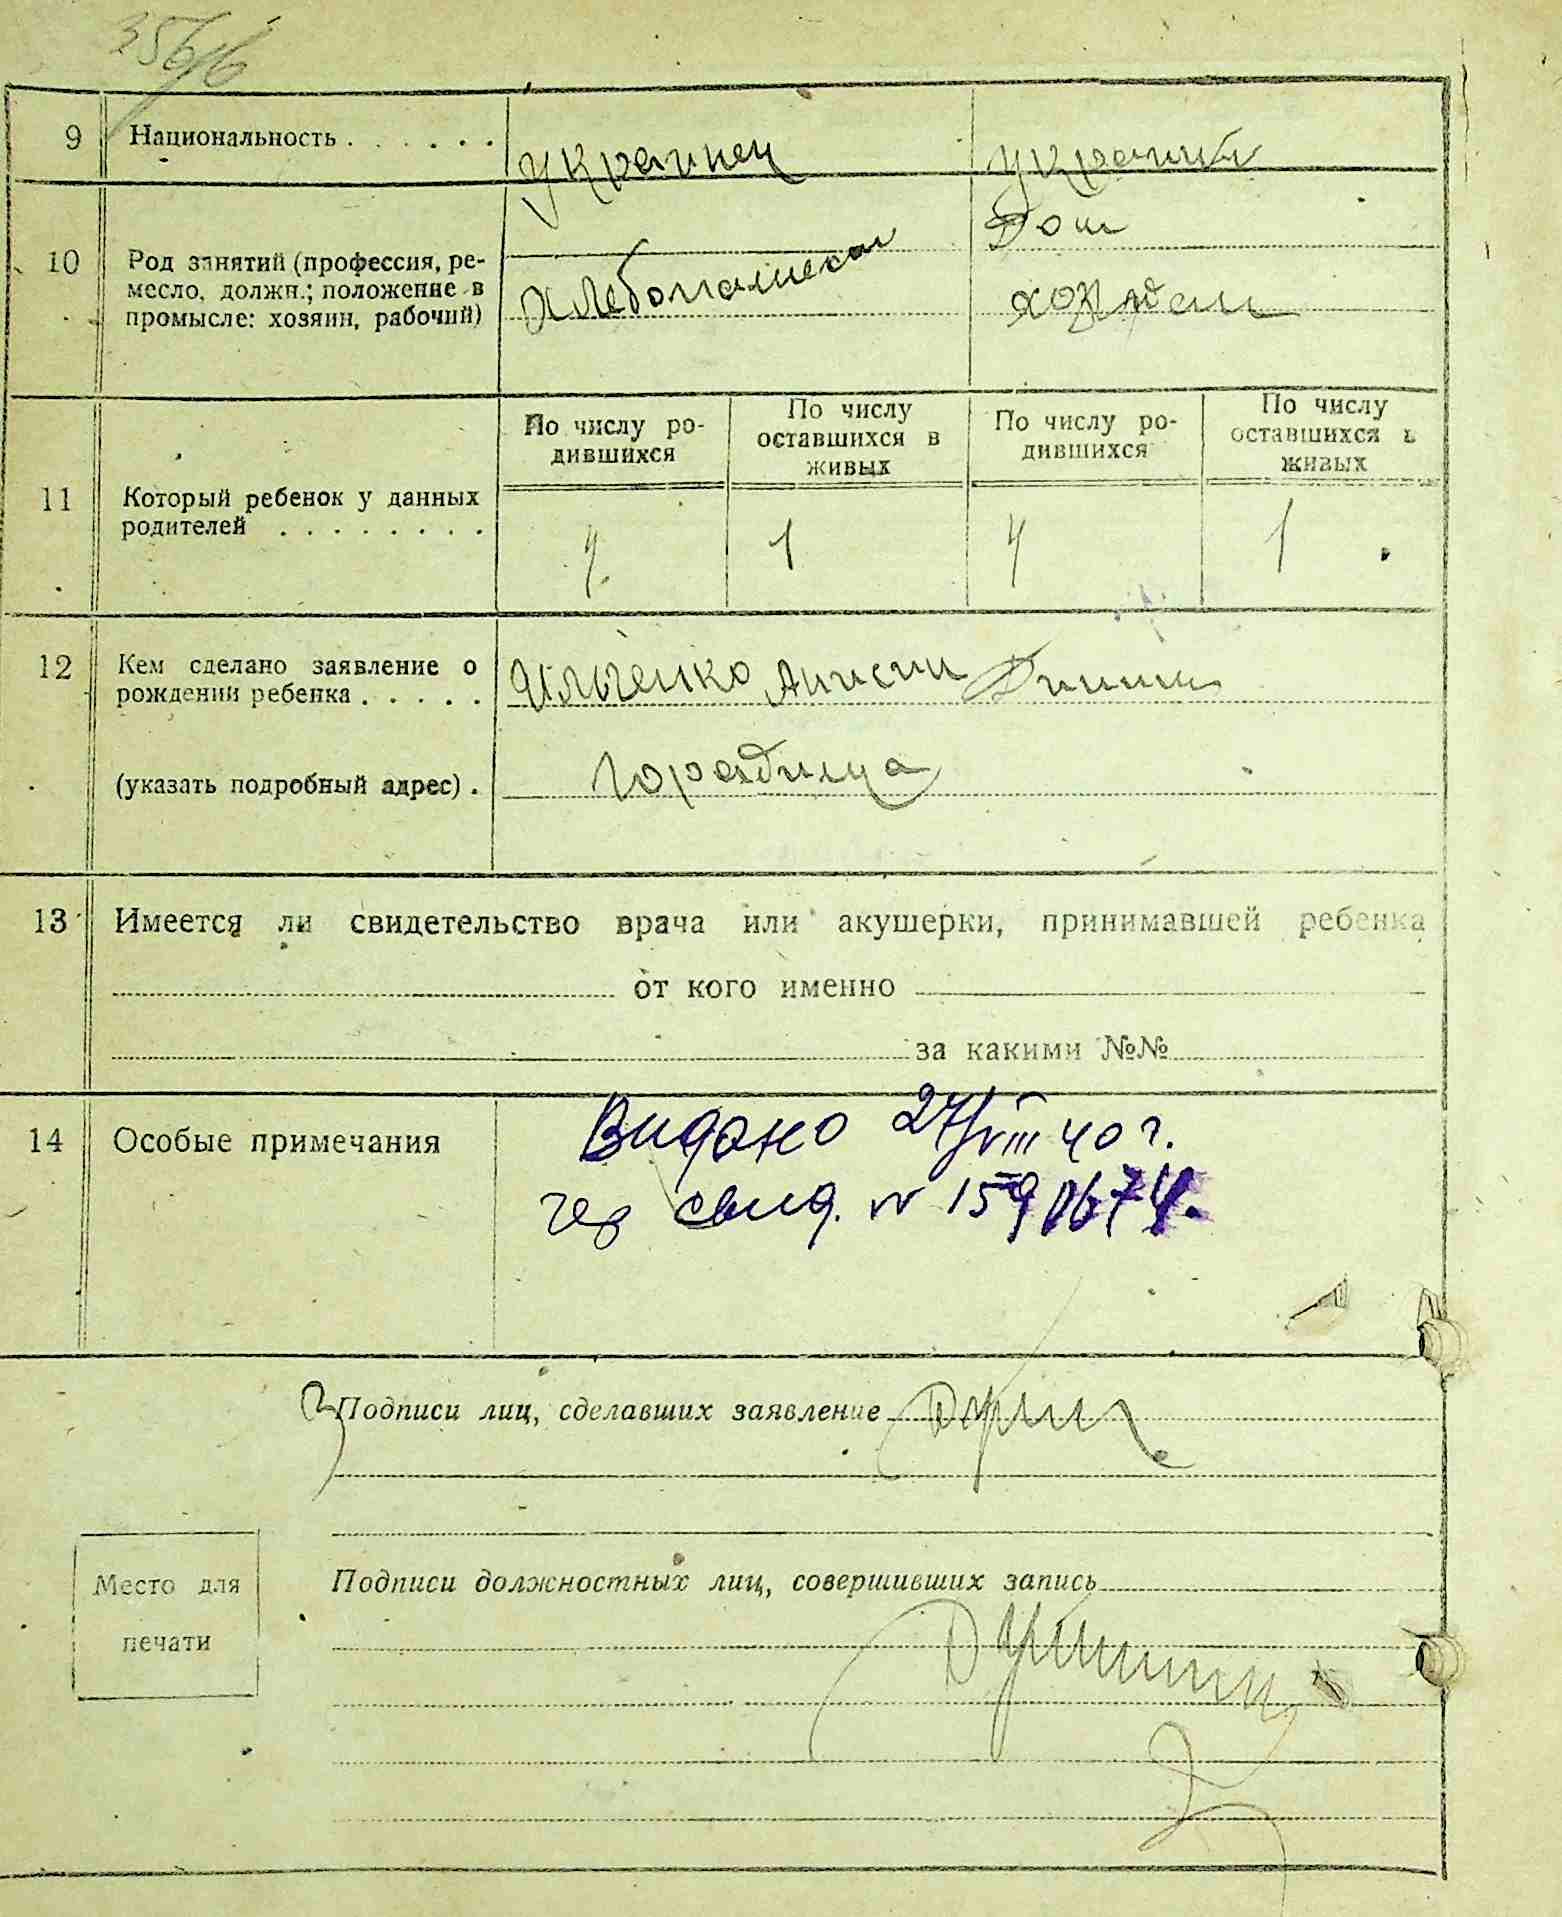 9 Национальность . . . . . . Украинец Украинка
10 Род занятий (профессия, ре-
месло, должн.; положение в
промысле: хозяин, рабочий)
Дом
хозяйст
По числу ро-
дившихся
По числу
оставшихся в
живых
По числу ро-
дившихся
По числу
оставшихся в
живых
11 Который ребенок у данных
родителей . . . . . . . .
1 4 1
12 Кем сделано заявление о
рождении ребенка . . . . .
Ильченко
(указать подробный адрес) . Городища
13 Имеется ли свидетельство врача или акушерки, принимавшей ребенка
от кого именно
за какими №№
14 Особые примечания
Видано 27/VIII 40 г.
свид. №
Подписи лиц, сделавших заявление
Место для
печати
Подписи должностных лиц, совершивших запись